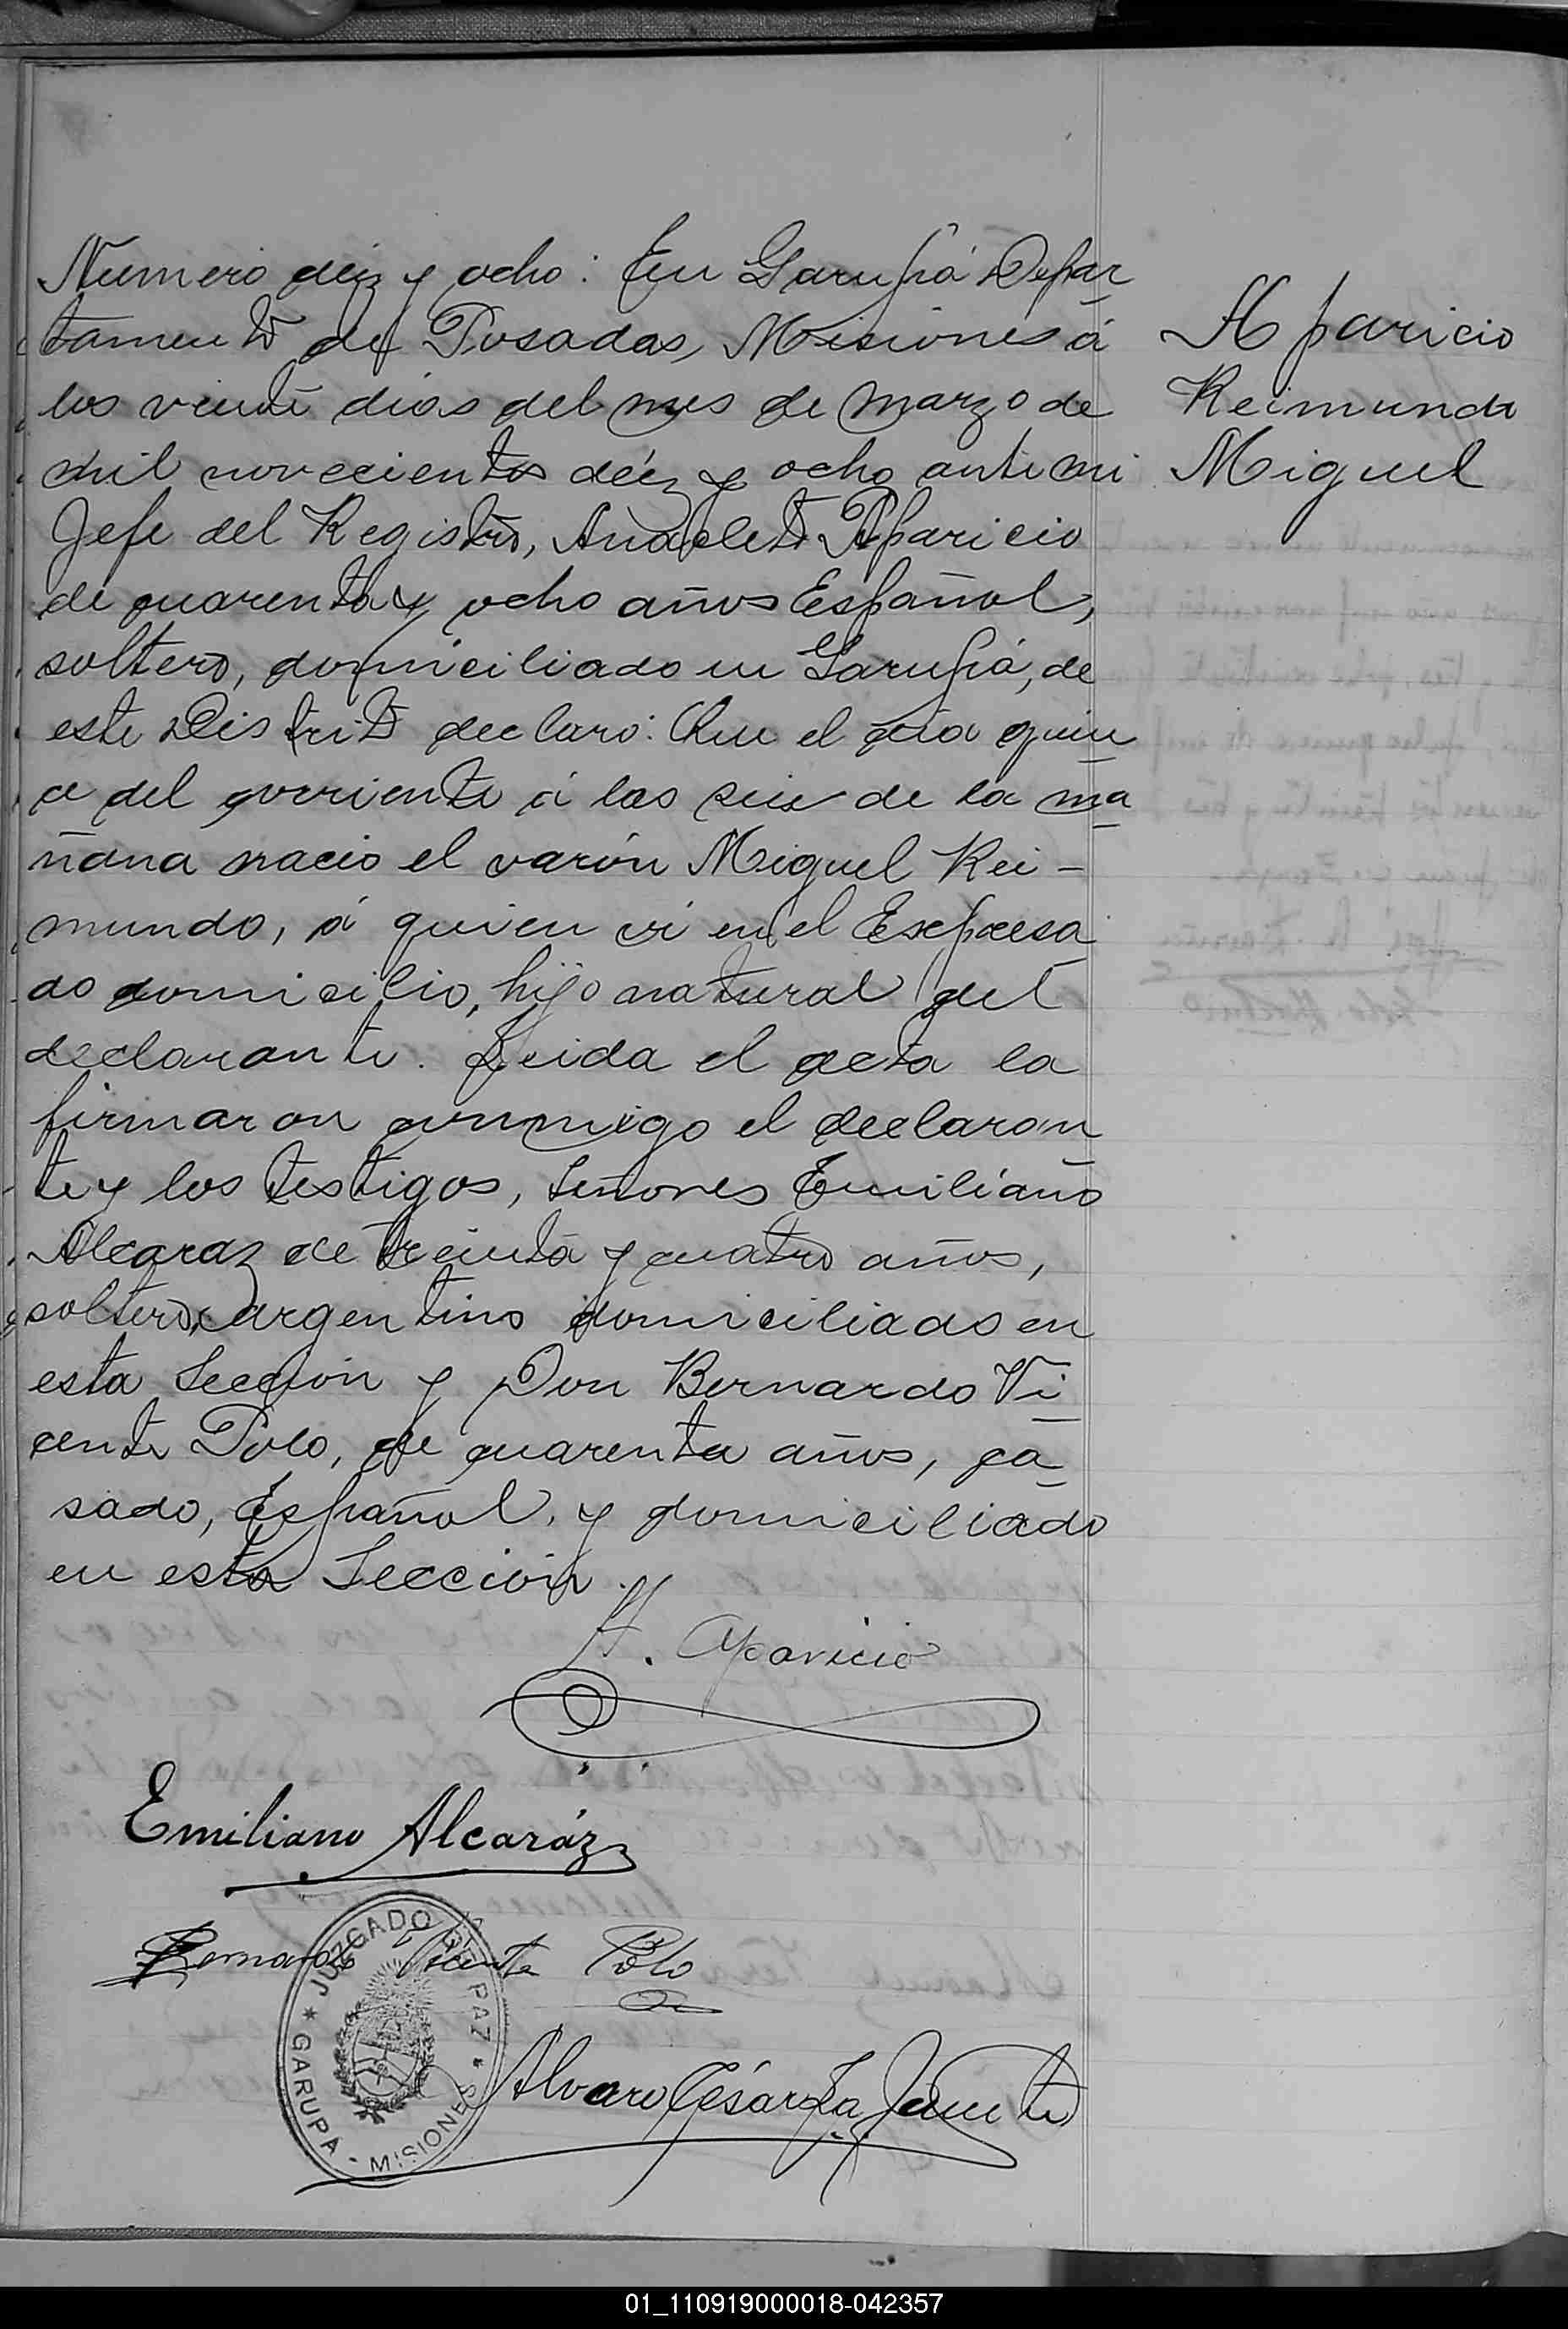 Numero diez y ocho: En Garupá Depar
tamento de Posadas, Misiones á
los veinte dias del mes de Marzo de
mil novecientos diez y ocho ante mi
Jefe del Registro, Anacleto Aparicio
de cuarenta y ocho años Español,
soltero, domiciliado en Garupá, de
este Distrito declaró: Que el día quin
ce del corriente á las seis de la ma
ñana nació el varón Miguel Rei-
mundo, á quien ví en el Expresa
do domicilio, hijo natural del
declarante. Leida el acta la
firmaron conmigo el declaran
te y los testigos, Señores Emiliano
Alcaraz de treinta y cuatro años,
soltero, argentino domiciliado en
esta Sección y Don Bernardo Vi
cente Polo, de cuarenta años, ca
sado, Español, y domiciliado
en esta Sección.
Aparicio
Reimundo
Miguel
A. Aparicio
Emiliano Alcaráz
Bernardo Vicente Polo
JUZGADO DE PAZ
GARUPA - MISIONES
Alvaro César
01_110919000018-042357